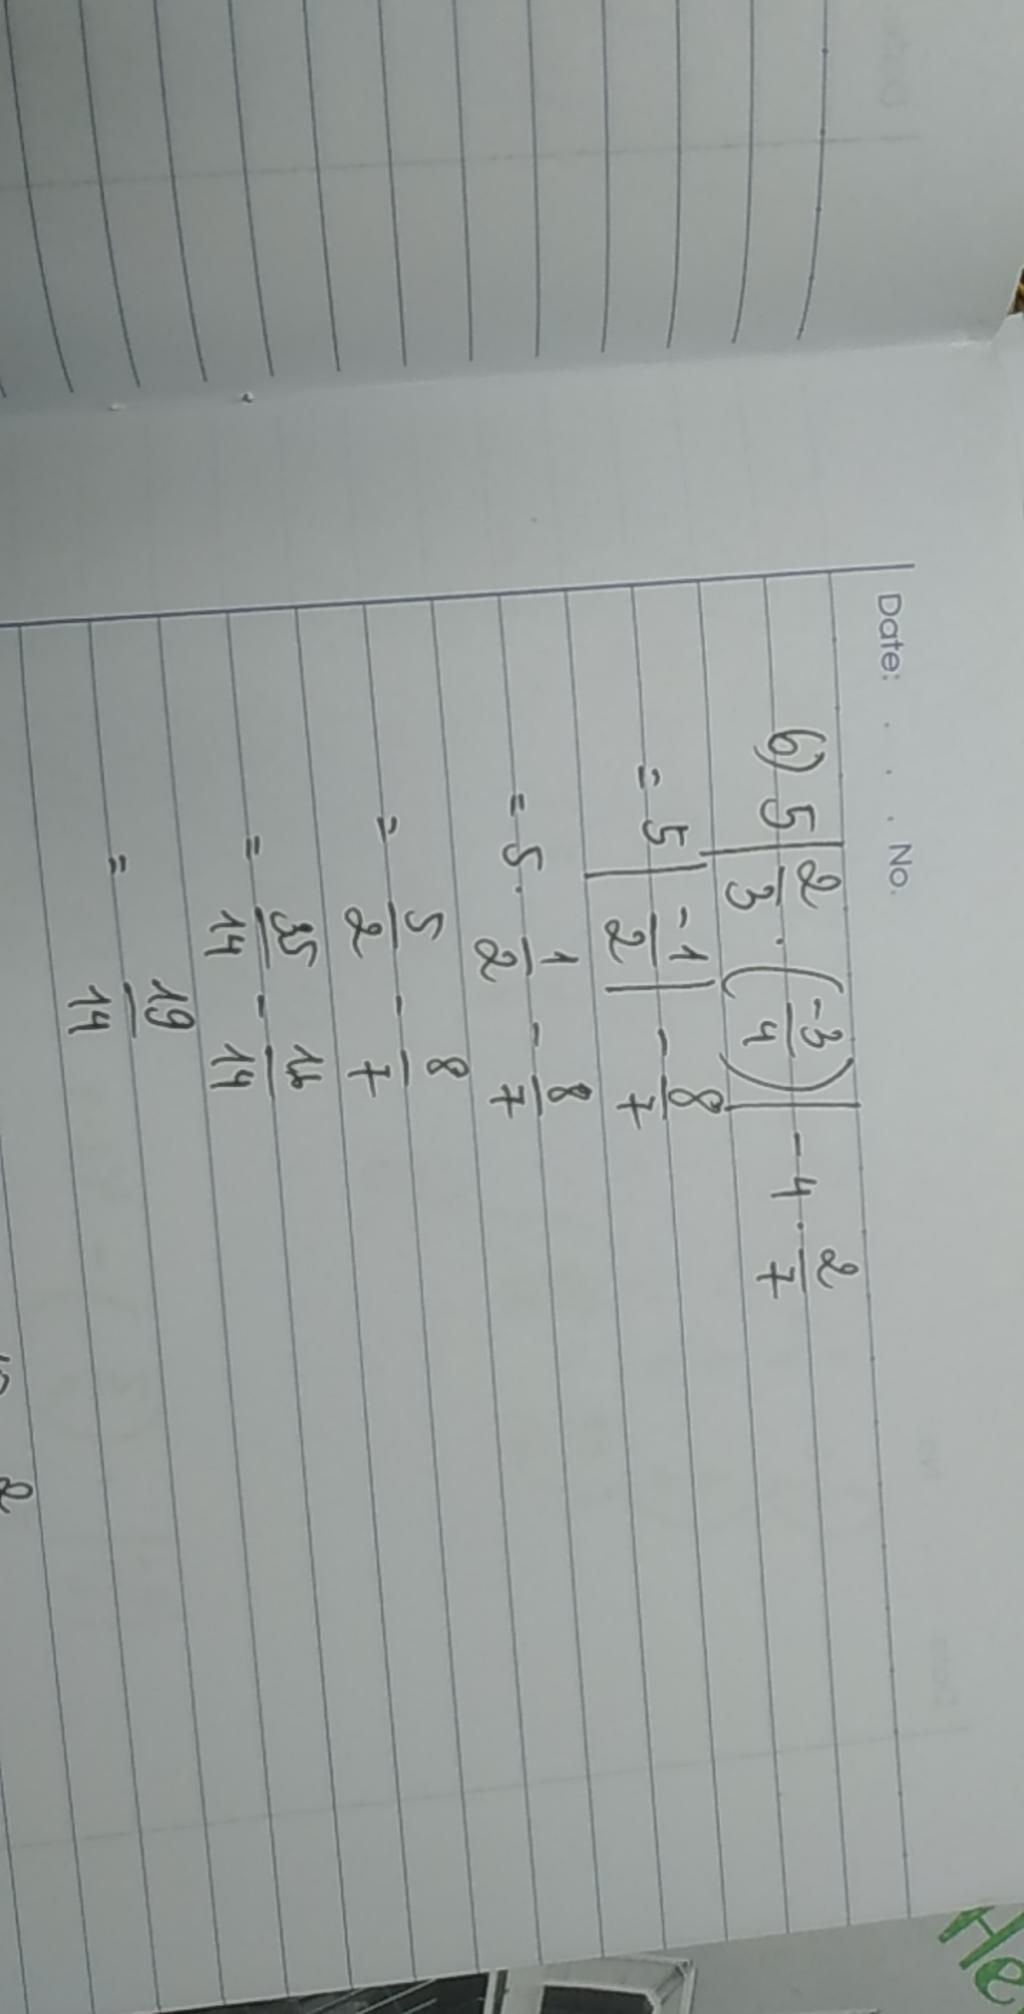 Date: . . . No.
b) 5 |2/3 · (-3/4)| - 4 · 2/7
= 5 |-1/2| - 8/7
= 5 · 1/2 - 8/7
= 5/2 - 8/7
= 35/14 - 16/14
= 19/14
He